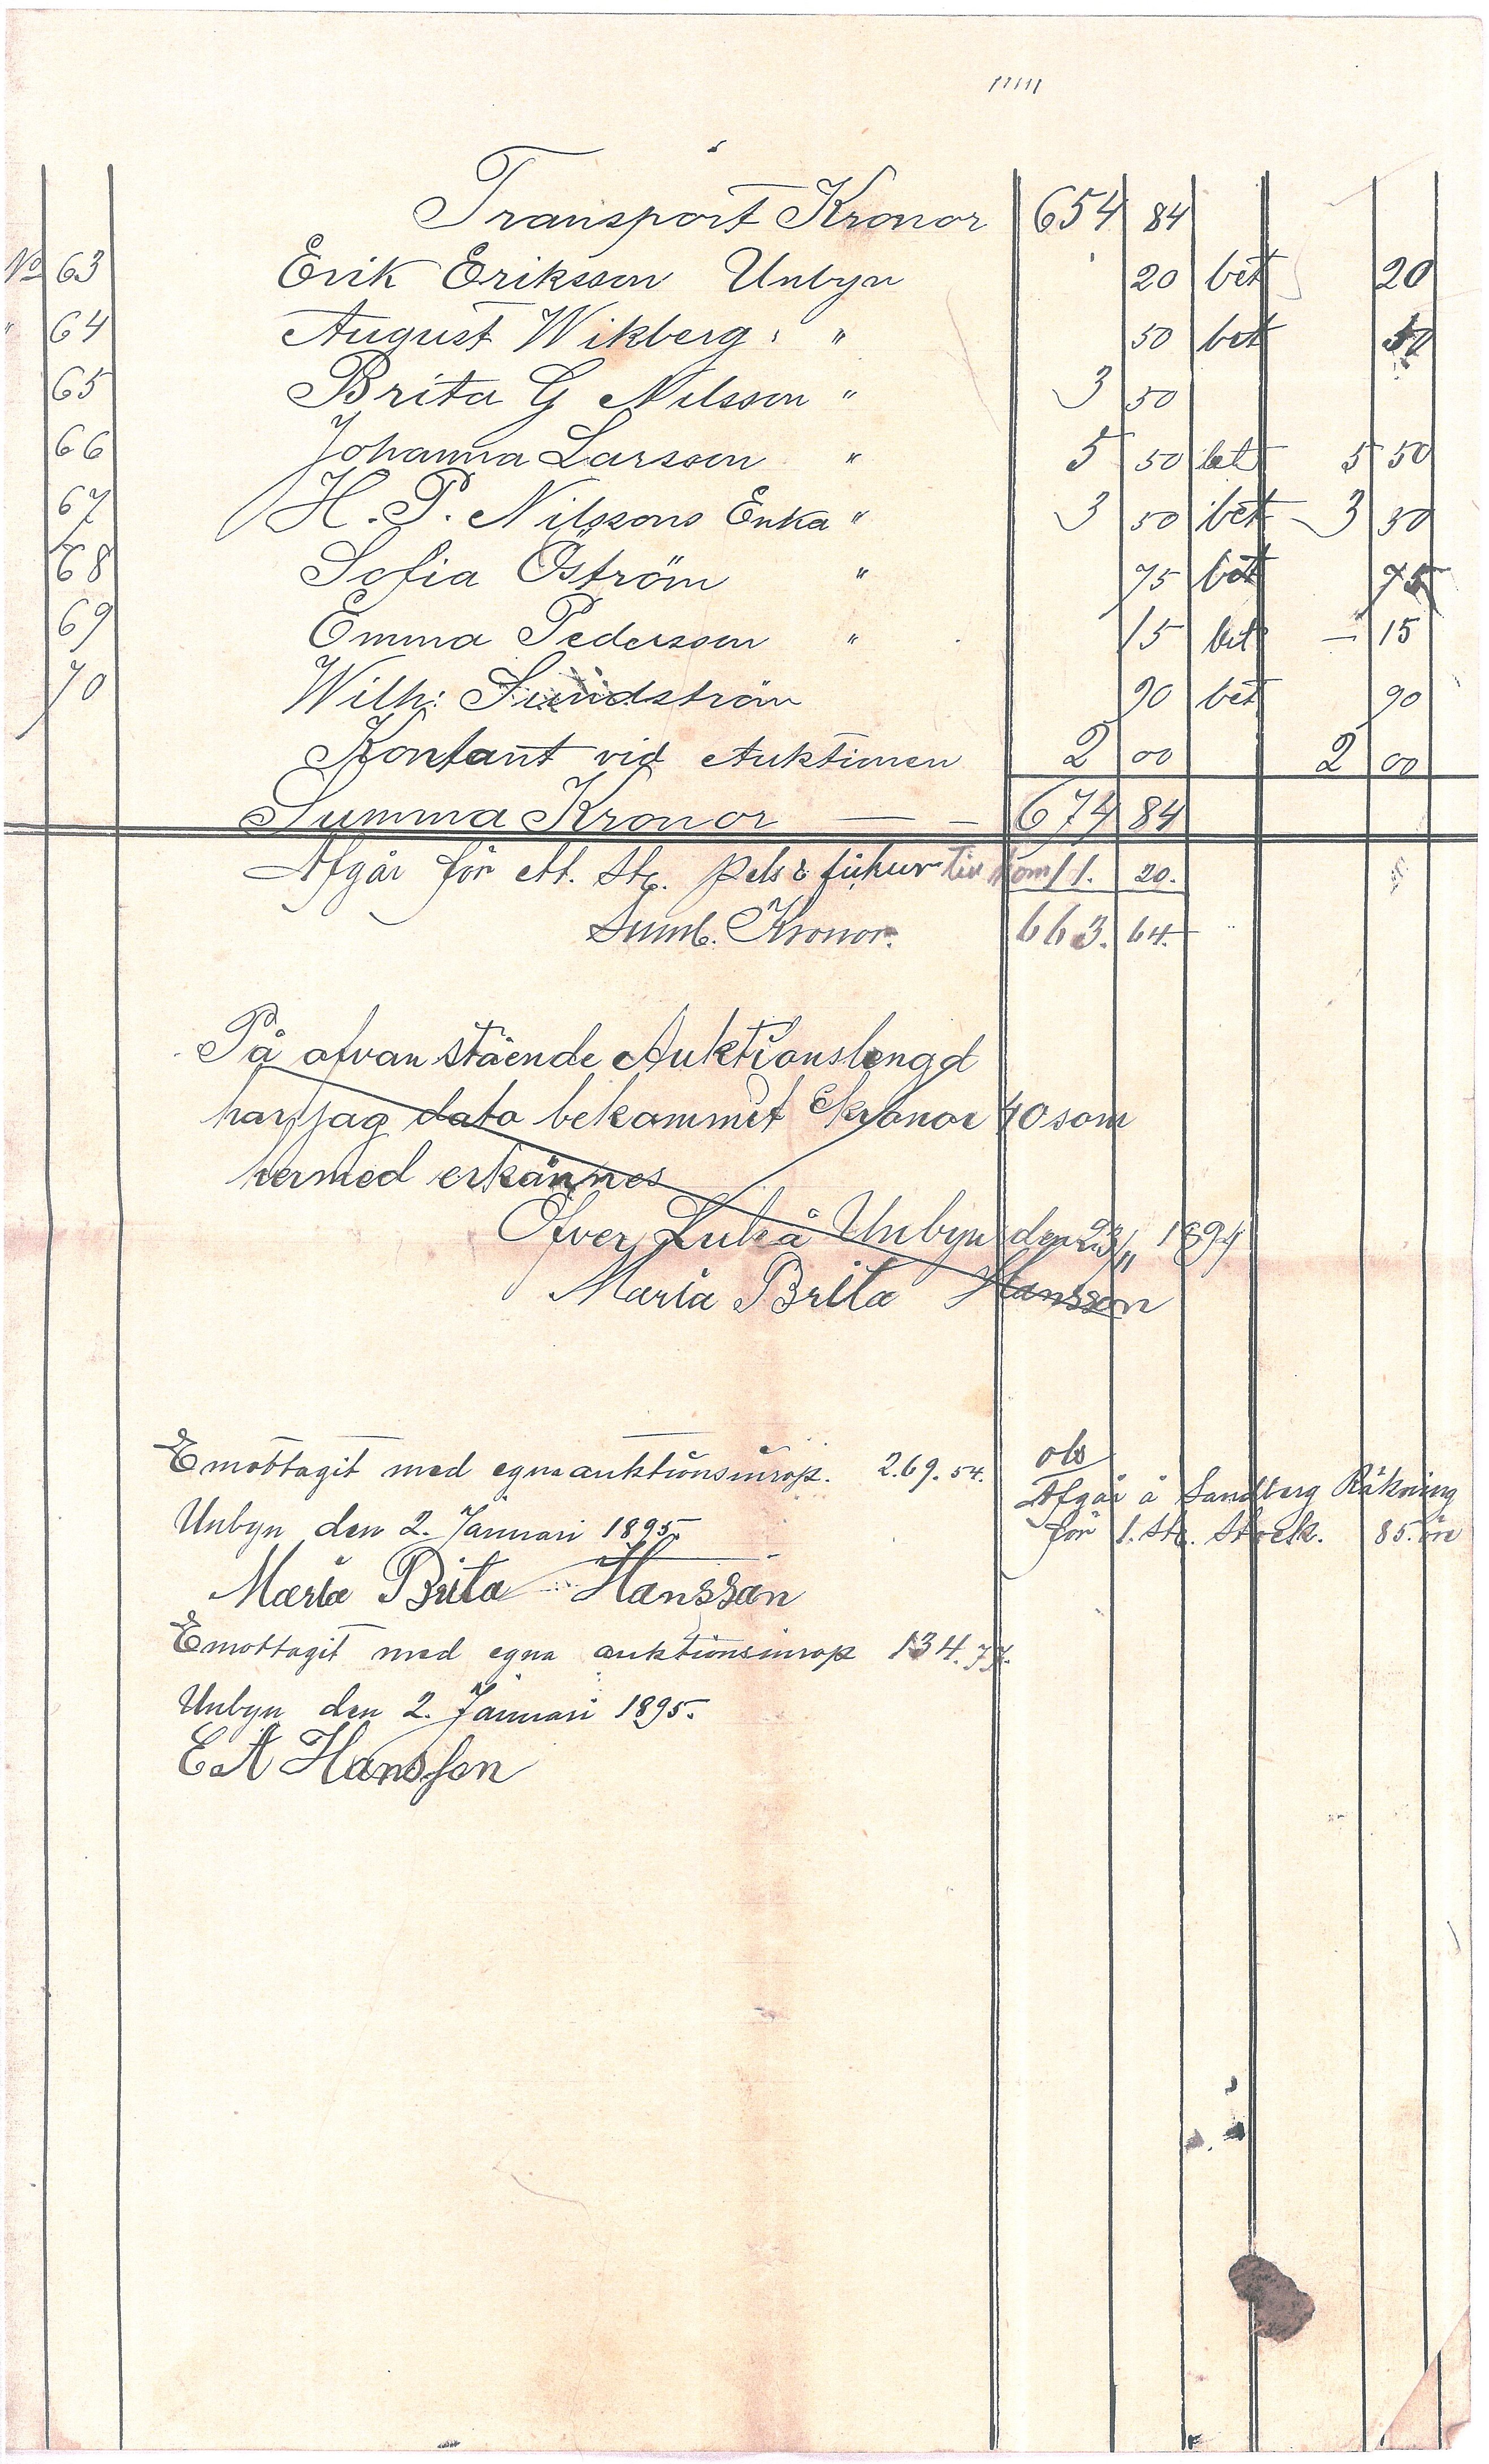 Transport Kronor 654 84
No 63 Erik Eriksson Unbyn 20 bet 20
" 64 August Wikberg " 50 bet 50
65 Brita G Nilsson " 3 50
66 Johanna Larsson " 5 50 bet 5 50
67 H. P. Nilssons Enka " 3 50 bet 3 50
68 Sofia Öström " 75 bet 75
69 Emma Pedersson " 15 bet — 15
70 Wilh: Sundström 90 bet 90
Kontant vid Auktionen 2 00 2 00
Summa Kronor — — 674 84
Afgår för ett. St. 11. 20.
Summ. Kronor. 663. 64.
På ofvan stående Auktionslengd
har jag dato bekommit Kronor 40 som
hermed erkännes
Öfver Luleå Unbyn den 23/11 1894
Maria Brita Hansson
Emottagit med egna auktionsinrop. 269. 54.
Unbyn den 2. Januari 1895.
Maria Brita Hansson
obs
Afgår å Sandberg Räkning
för 1. St. Stock. 85. öre
Emottagit med egna auktionsinrop 134. 77.
Unbyn den 2. Januari 1895.
E A Hansson